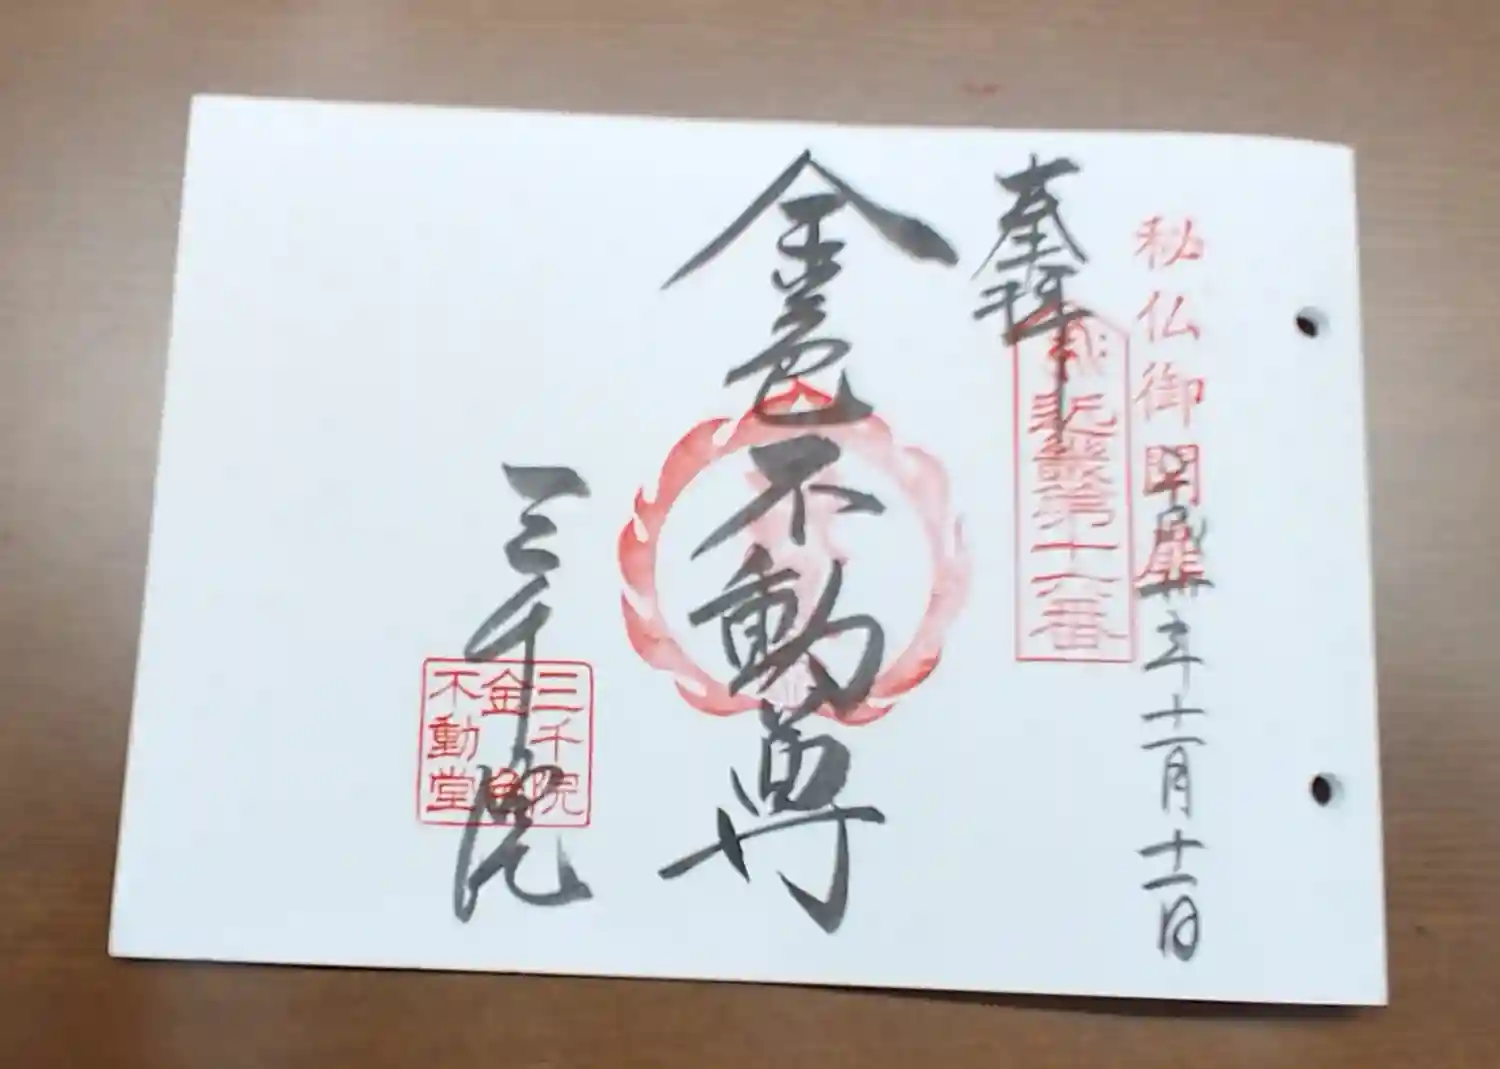 秘仏御開扉
平成廿五年十一月十一日
奉拝
近畿第十六番
金色不動尊
三千院
三千院
金色
不動堂